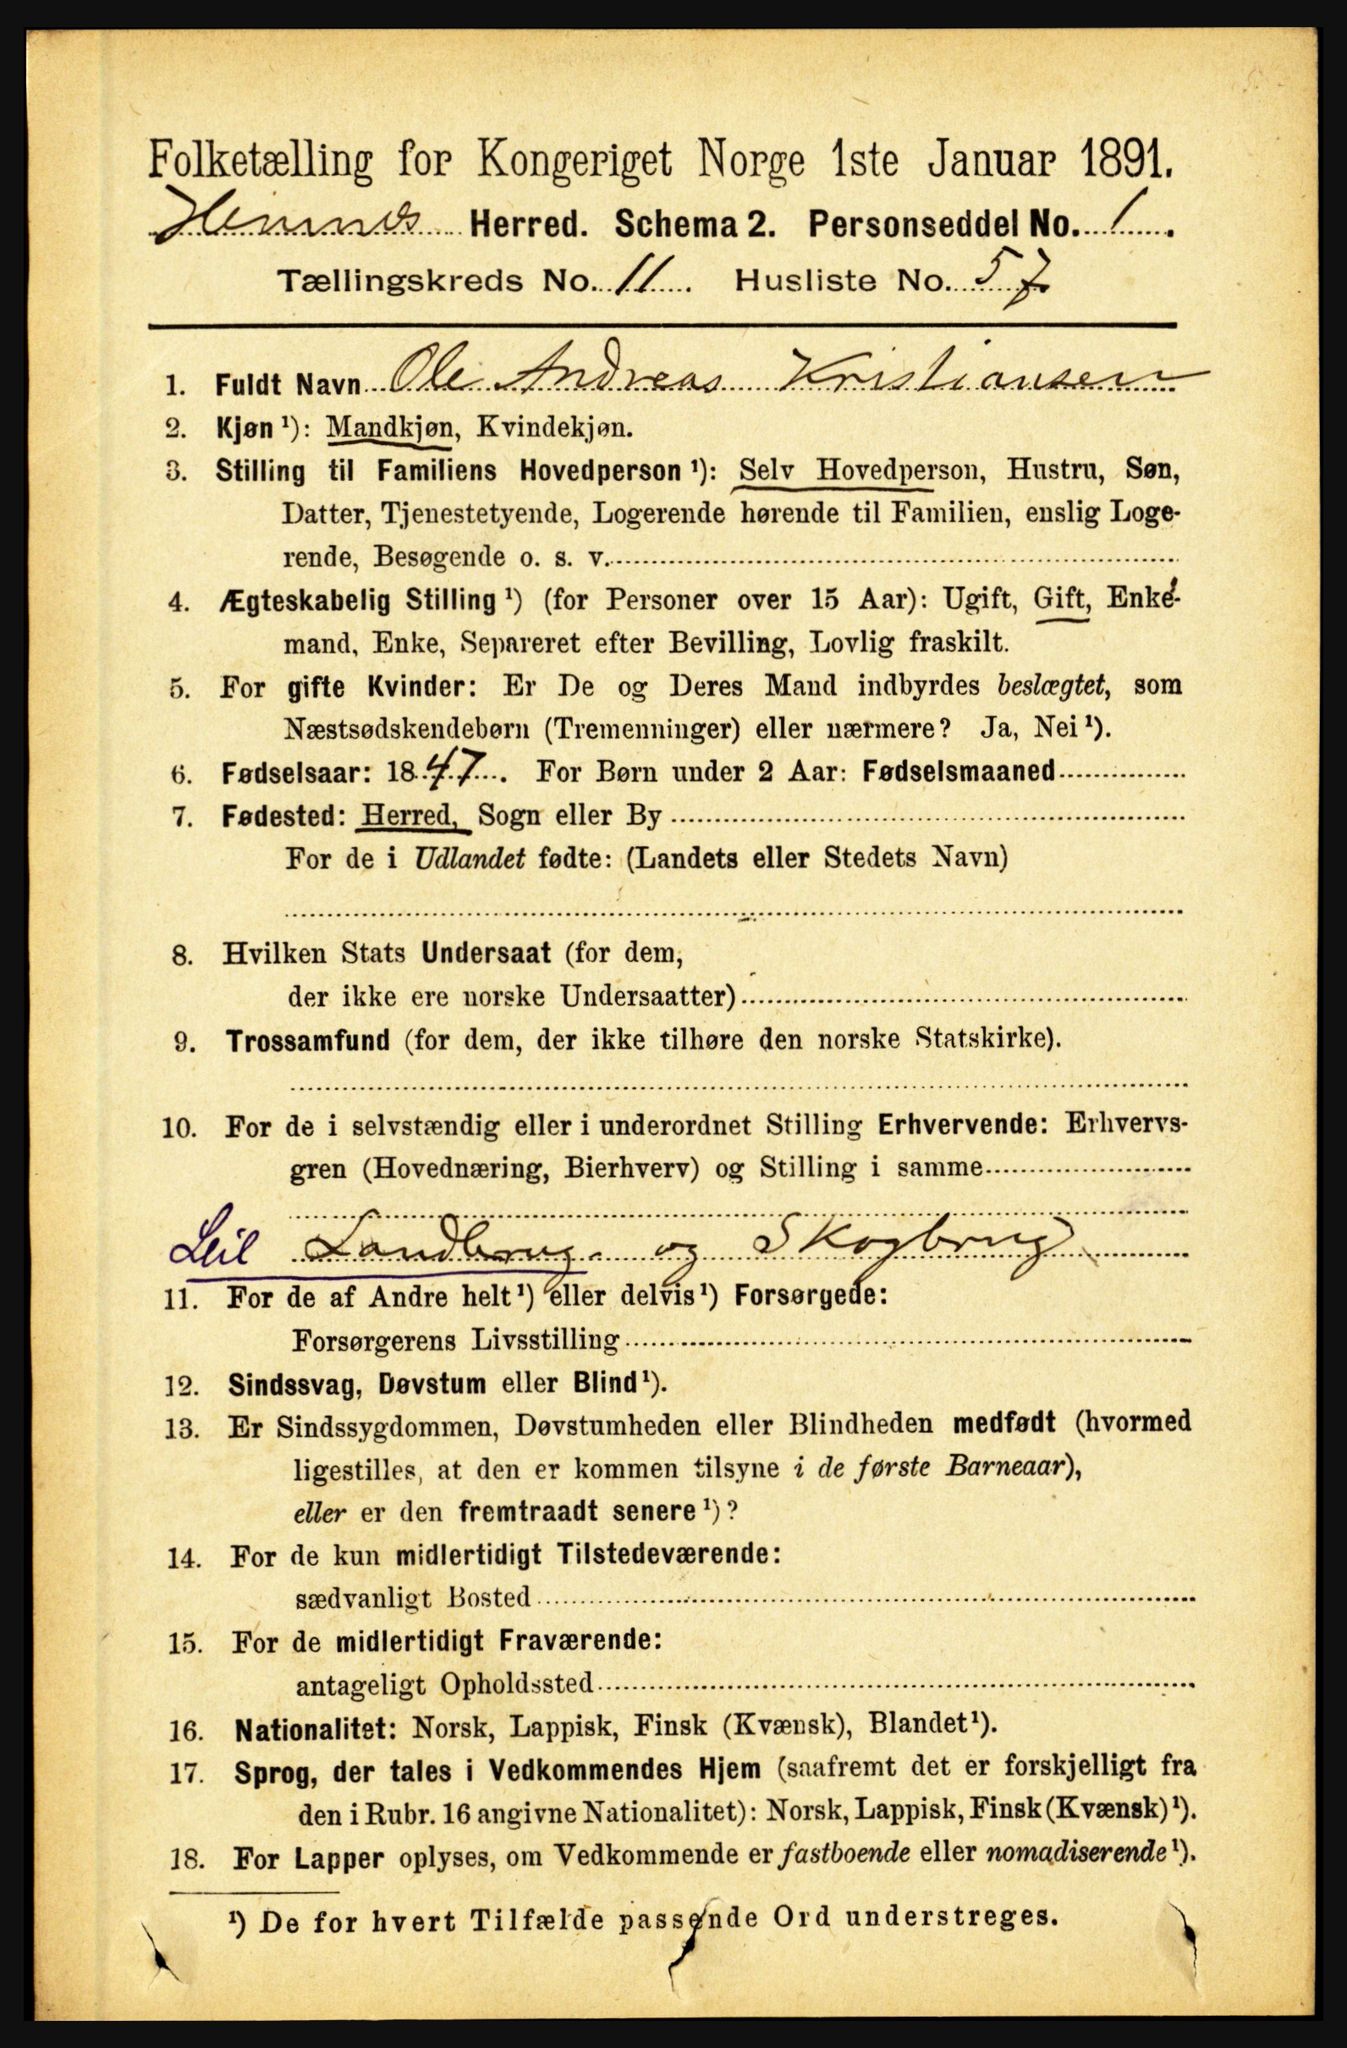 Folketælling for Kongeriget Norge 1ste Januar 1891.
Hemnæs Herred. Schema 2. Personseddel No. 1.
Tællingskreds No. 11. Husliste No. 57.
1. Fuldt Navn Ole Andreas Kristiansen
2. Kjøn ¹): Mandkjøn, Kvindekjøn.
3. Stilling til Familiens Hovedperson ¹): Selv Hovedperson, Hustru, Søn,
Datter, Tjenestetyende, Logerende hørende til Familien, enslig Loge-
rende, Besøgende o. s. v.
4. Ægteskabelig Stilling ¹) (for Personer over 15 Aar): Ugift, Gift, Enke-
mand, Enke, Separeret efter Bevilling, Lovlig fraskilt.
5. For gifte Kvinder: Er De og Deres Mand indbyrdes beslægtet, som
Næstsødskendebørn (Tremenninger) eller nærmere? Ja, Nei ¹).
6. Fødselsaar: 1847. For Børn under 2 Aar: Fødselsmaaned
7. Fødested: Herred, Sogn eller By
For de i Udlandet fødte: (Landets eller Stedets Navn)
8. Hvilken Stats Undersaat (for dem,
der ikke ere norske Undersaatter)
9. Trossamfund (for dem, der ikke tilhøre den norske Statskirke).
10. For de i selvstændig eller i underordnet Stilling Erhvervende: Erhvervs-
gren (Hovednæring, Bierhverv) og Stilling i samme
Leil Landbrug og Skogbrug
11. For de af Andre helt ¹) eller delvis ¹) Forsørgede:
Forsørgerens Livsstilling
12. Sindssvag, Døvstum eller Blind ¹).
13. Er Sindssygdommen, Døvstumheden eller Blindheden medfødt (hvormed
ligestilles, at den er kommen tilsyne i de første Barneaar),
eller er den fremtraadt senere ¹)?
14. For de kun midlertidigt Tilstedeværende:
sædvanligt Bosted
15. For de midlertidigt Fraværende:
antageligt Opholdssted
16. Nationalitet: Norsk, Lappisk, Finsk (Kvænsk), Blandet ¹).
17. Sprog, der tales i Vedkommendes Hjem (saafremt det er forskjelligt fra
den i Rubr. 16 angivne Nationalitet): Norsk, Lappisk, Finsk (Kvænsk) ¹).
18. For Lapper oplyses, om Vedkommende er fastboende eller nomadiserende ¹).
¹) De for hvert Tilfælde passende Ord understreges.